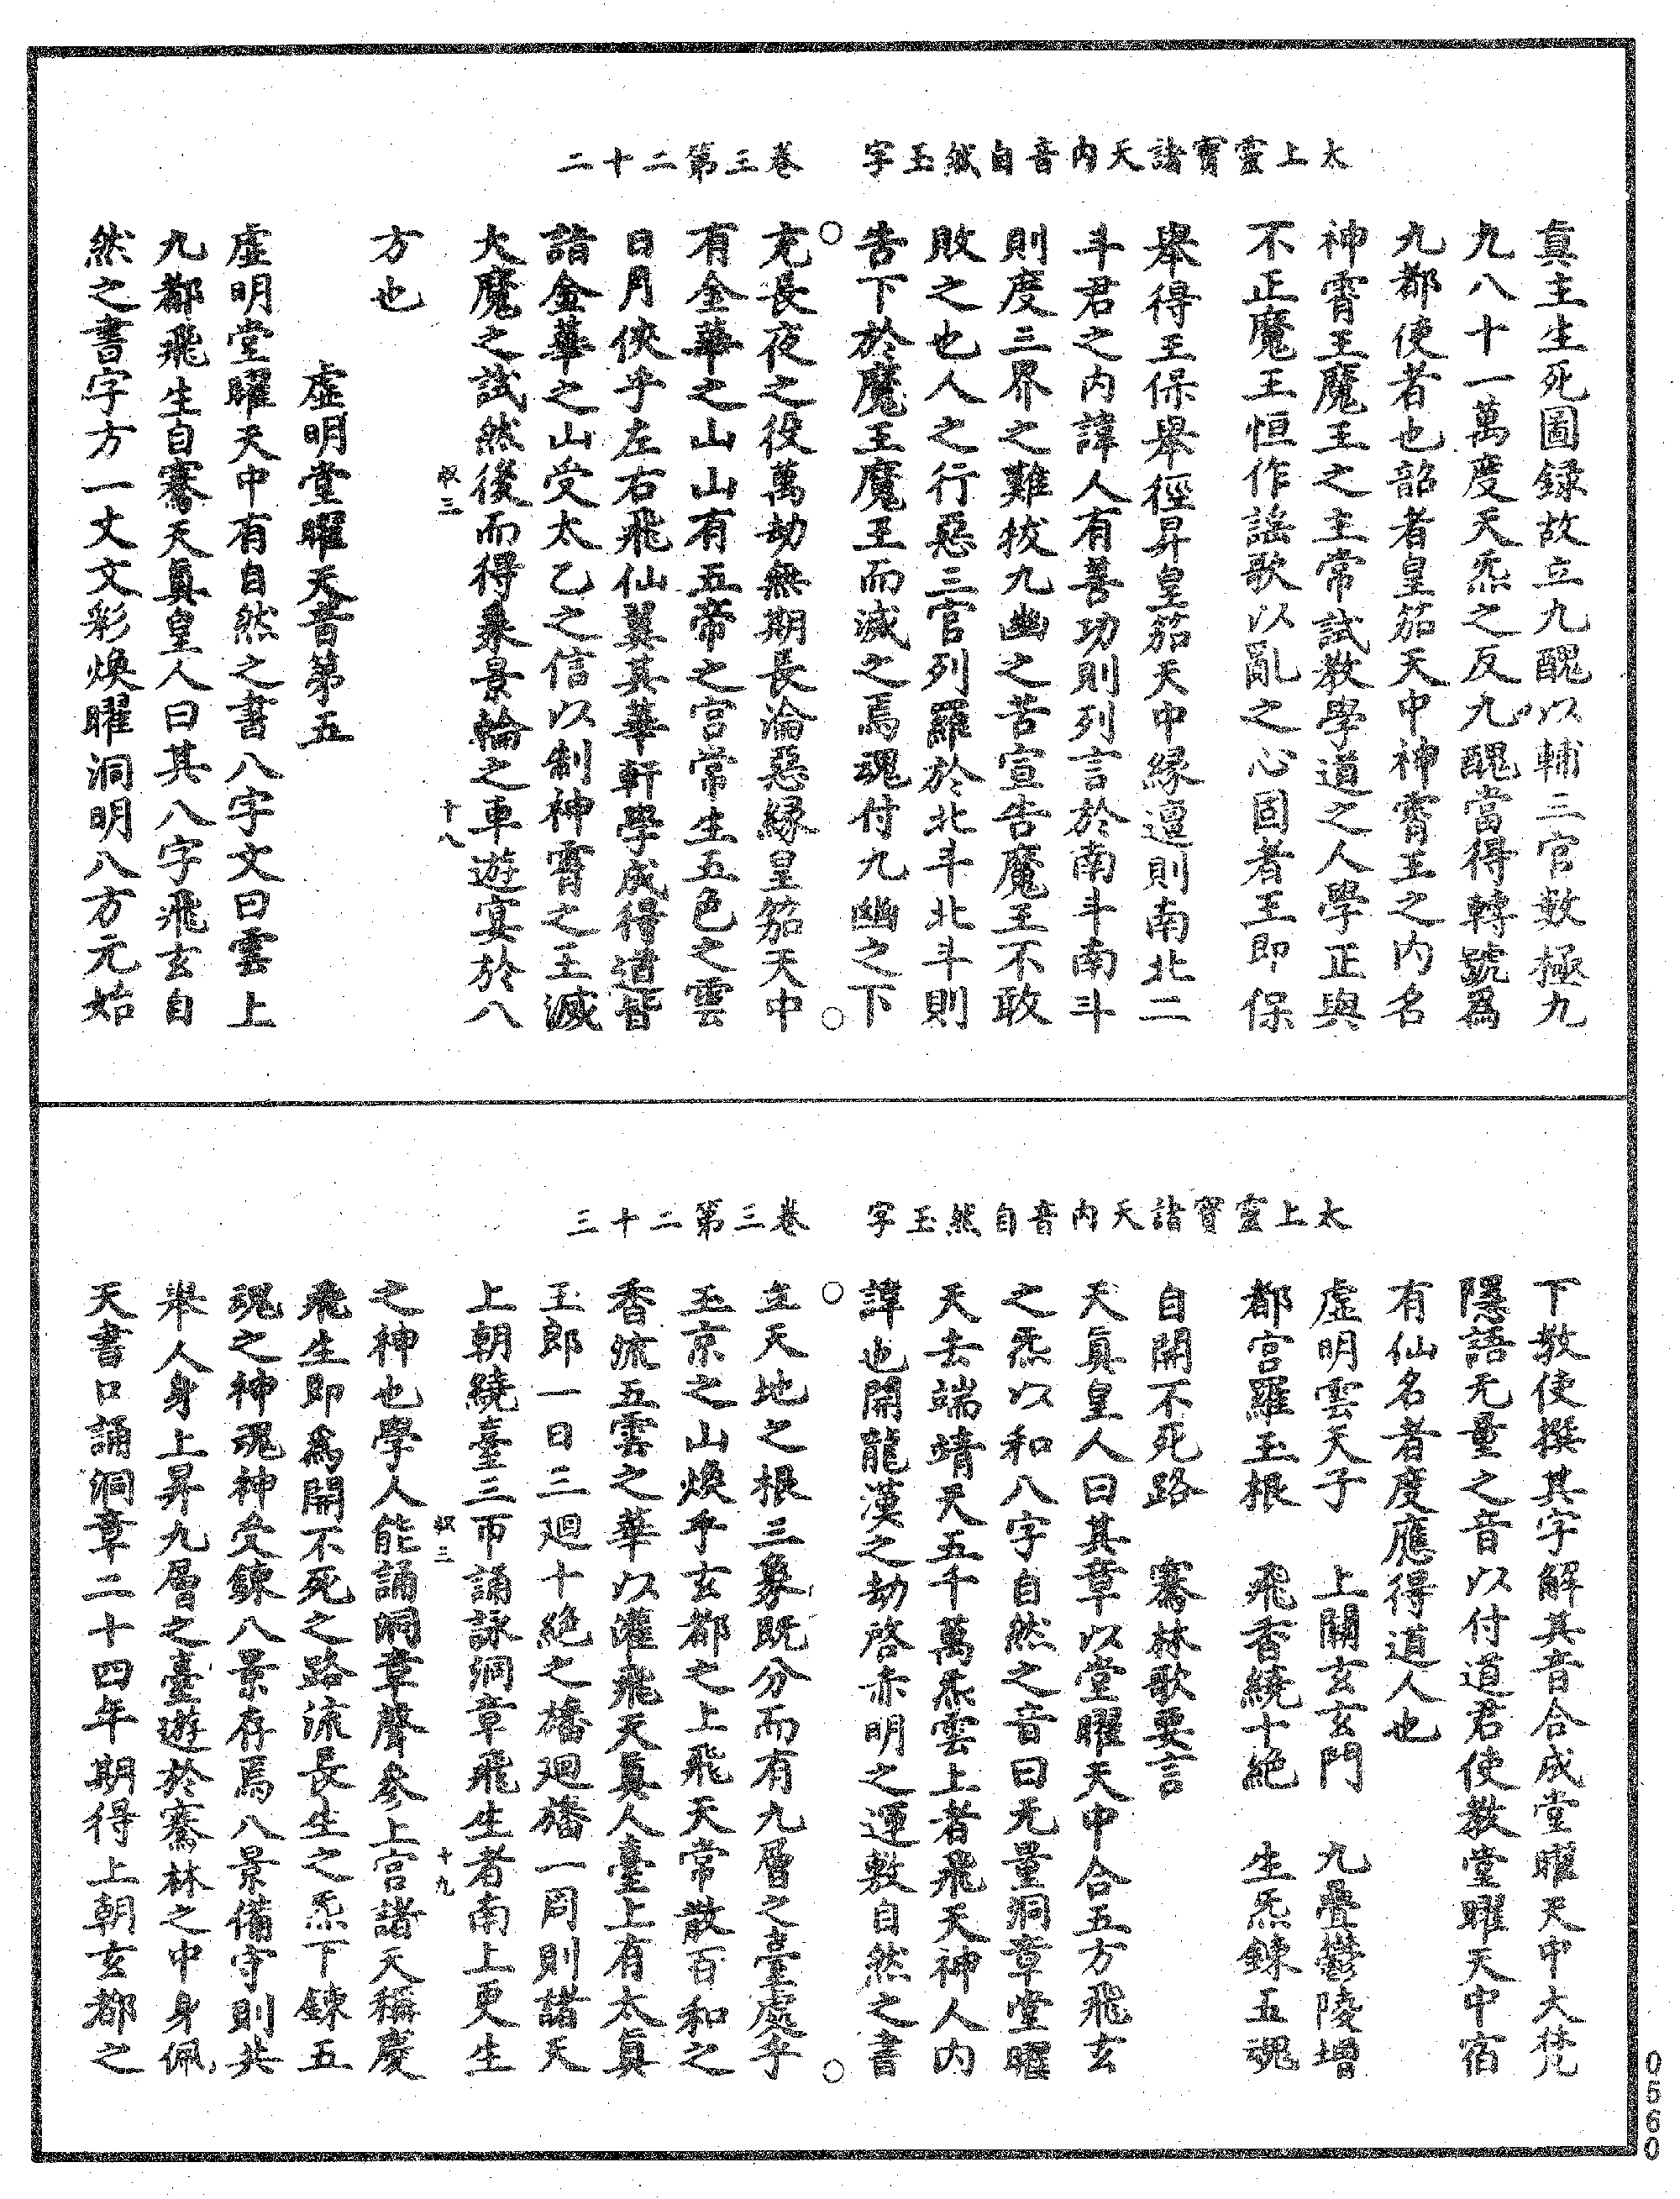 太上靈寶諸天內音自然玉字　卷三第二十二
真主生死圖録故立九醜以輔三官數極九
九八十一萬度天炁之反九醜當得轉號爲
九都使者也韶者皇笳天中神霄王之內名
神霄王魔王之主常試教學道之人學正與
不正魔王恒作謠歌以亂之心固者王即保
舉得王保舉徑昇皇笳天中緣邅則南北二
斗君之內諱人有善功則列言於南斗南斗
則度三界之難拔九幽之苦宣告魔王不敢
敗之也人之行惡三官列羅於北斗北斗則
告下於魔王魔王而滅之焉魂付九幽之下
充長夜之役萬劫無期長淪惡緣皇笳天中
有金華之山山有五帝之宮常生五色之雲
日月俠乎左右飛仙翼其華軒學成得道皆
詣金華之山受太乙之信以制神霄之王滅
大魔之試然後而得乘景輪之車遊宴於八
三　十八
方也
虛明堂曜天音第五
虛明堂曜天中有自然之書八字文曰雲上
九都飛生自騫天真皇人曰其八字飛玄自
然之書字方一丈文彩煥曜洞明八方元始
太上靈寶諸天內音自然玉字　卷三第二十三
下教使撰其字解其音合成堂曜天中大梵
隱語无量之音以付道君使教堂曜天中宿
有仙名者度應得道人也
虛明雲天子　上開玄玄門　九疊鬱陵增
都宮羅玉根　飛香繞十絕　生炁鍊五魂
自開不死路　騫林歌要言
天真皇人曰其章以堂曜天中合五方飛玄
之炁以和八字自然之音曰无量洞章堂曜
天去端靖天五千萬炁雲上者飛天神人內
諱也開龍漢之劫啓赤明之運敷自然之書
立天地之根三象既分而有九層之臺處乎
玉京之山煥乎玄都之上飛天常散百和之
香流五雲之華以灌飛天真人臺上有太真
玉郎一日三迴十絕之旛迴旛一周則諸天
上朝繞臺三帀誦詠洞章飛生者南上更生
三　十九
之神也學人能誦洞章聲參上宮諸天稱慶
飛生即爲開不死之路流長生之炁下鍊五
魂之神魂神受鍊八景存焉八景備守則共
舉人身上昇九層之臺遊於騫林之中身佩
天書口誦洞章二十四年期得上朝玄都之
0560